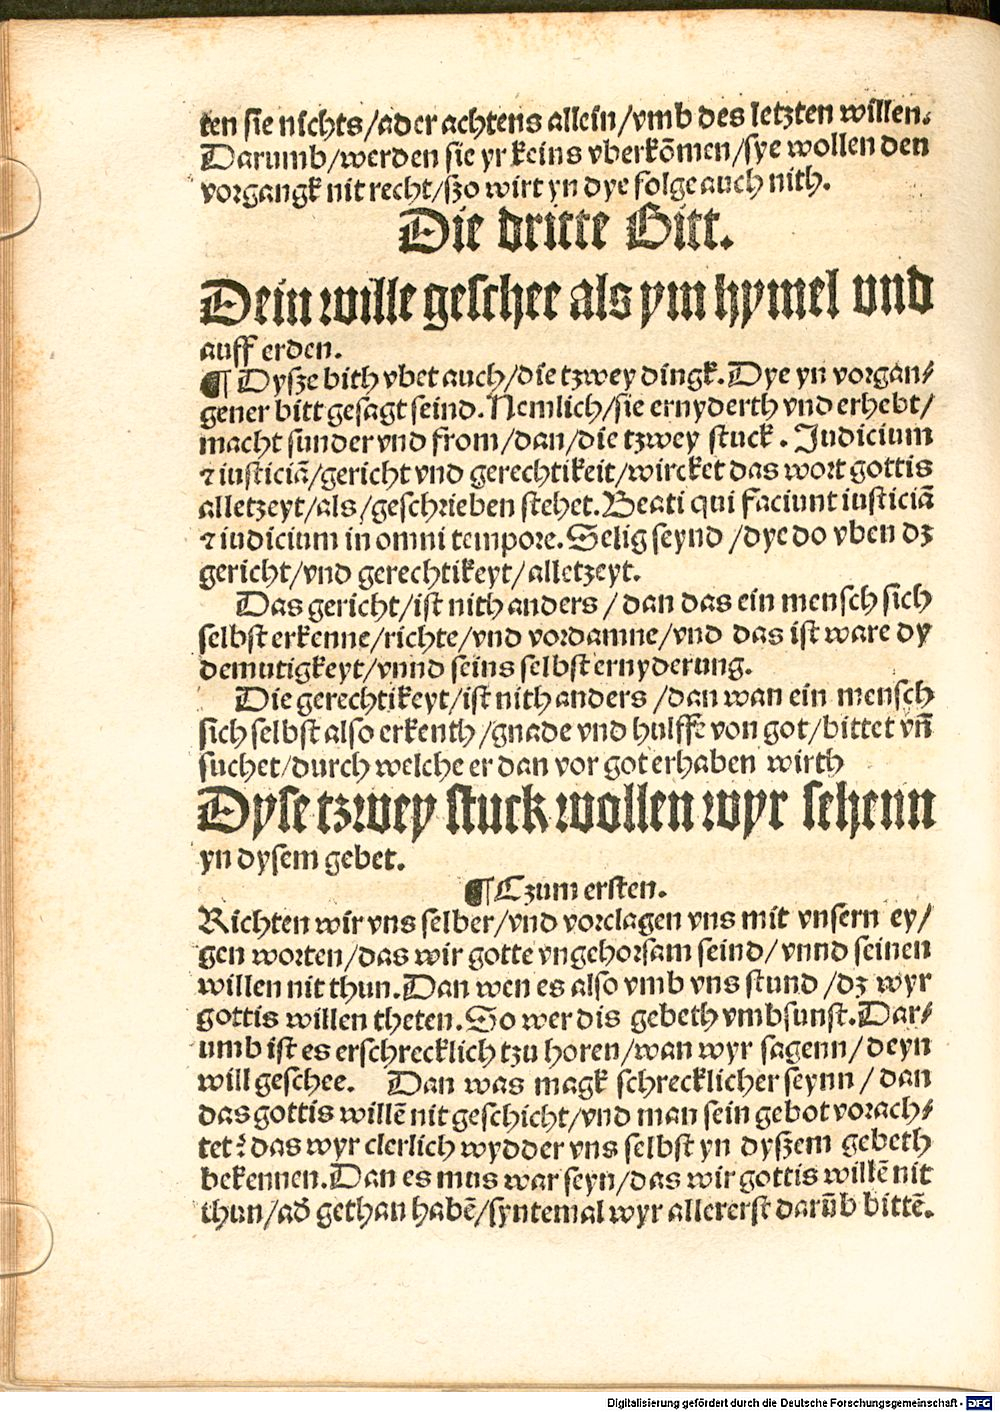 ten sie nichts/ader achtens allein/vmb des letzten willen.
Darumb/werden sie yr keins vberkõmen/sye wollen den
vorgangk nit recht/szo wirt yn dye folge auch nith.
Die dritte Bitt.
Dein wille geschee als ym hymel vnd
auff erden.
¶ Dysze bith vbet auch/die tzwey dingk. Dye yn vorgan⸗
gener bitt gesagt seind. Nemlich/sie ernyderth vnd erhebt/
macht sunder vnd from/dan/die tzwey stuck. Judicium
⁊ iusticiã/gericht vnd gerechtikeit/wircket das wort gottis
alletzeyt/als/geschrieben stehet. Beati qui faciunt iusticiã
⁊ iudicium in omni tempore. Selig seynd /dye do vben dz
gericht/vnd gerechtikeyt/alletzeyt.
Das gericht/ist nith anders/dan das ein mensch sich
selbst erkenne/richte/vnd vordamne/vnd das ist ware dy
demutigkeyt/vnnd seins selbst ernyderung.
Die gerechtikeyt/ist nith anders /dan wan ein mensch
sich selbst also erkenth/gnade vnd hulffe von got/bittet vñ
suchet/durch welche er dan vor got erhaben wirth
Dyse tzwey stuck wollen wyr sehenn
yn dysem gebet.
¶ Czum ersten.
Richten wir vns selber/vnd vorclagen vns mit vnsern ey/
gen worten/das wir gotte vngehorsam seind/vnnd seinen
willen nit thun. Dan wen es also vmb vns stund /dz wyr
gottis willen theten. So wer dis gebeth vmbsunst. Dar⸗
umb ist es erschrecklich tzu horen/wan wyr sagenn/deyn
will geschee. Dan was magk schrecklicher seynn/dan
das gottis willẽ nit geschicht/vnd man sein gebot vorach⸗
tet? das wyr clerlich wydder vns selbst yn dyszem gebeth
bekennen. Dan es mus war seyn/das wir gottis willẽ nit
thun/ad̃ gethan habẽ/syntemal wyr allererst darũb bittẽ.
Digitalisierung gefördert durch die Deutsche Forschungsgemeinschaft - DFG